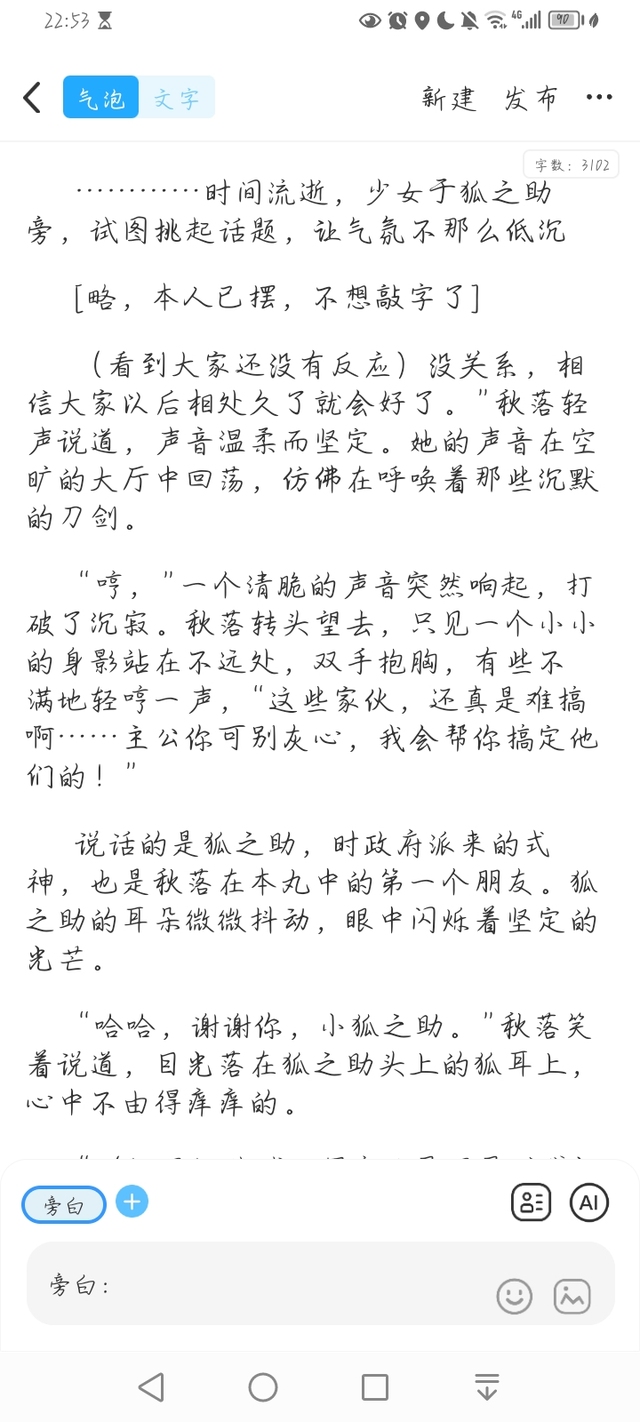 22:53
4G
90
气泡
文字
新建
发布
字数：3102
…………时间流逝，少女于狐之助
旁，试图挑起话题，让气氛不那么低沉
[略，本人已摆，不想敲字了]
（看到大家还没有反应）没关系，相
信大家以后相处久了就会好了。”秋落轻
声说道，声音温柔而坚定。她的声音在空
旷的大厅中回荡，仿佛在呼唤着那些沉默
的刀剑。
“哼，”一个清脆的声音突然响起，打
破了沉寂。秋落转头望去，只见一个小小
的身影站在不远处，双手抱胸，有些不
满地轻哼一声，“这些家伙，还真是难搞
啊……主公你可别灰心，我会帮你搞定他
们的！”
说话的是狐之助，时政府派来的式
神，也是秋落在本丸中的第一个朋友。狐
之助的耳朵微微抖动，眼中闪烁着坚定的
光芒。
“哈哈，谢谢你，小狐之助。”秋落笑
着说道，目光落在狐之助头上的狐耳上，
心中不由得痒痒的。
旁白
AI
旁白：